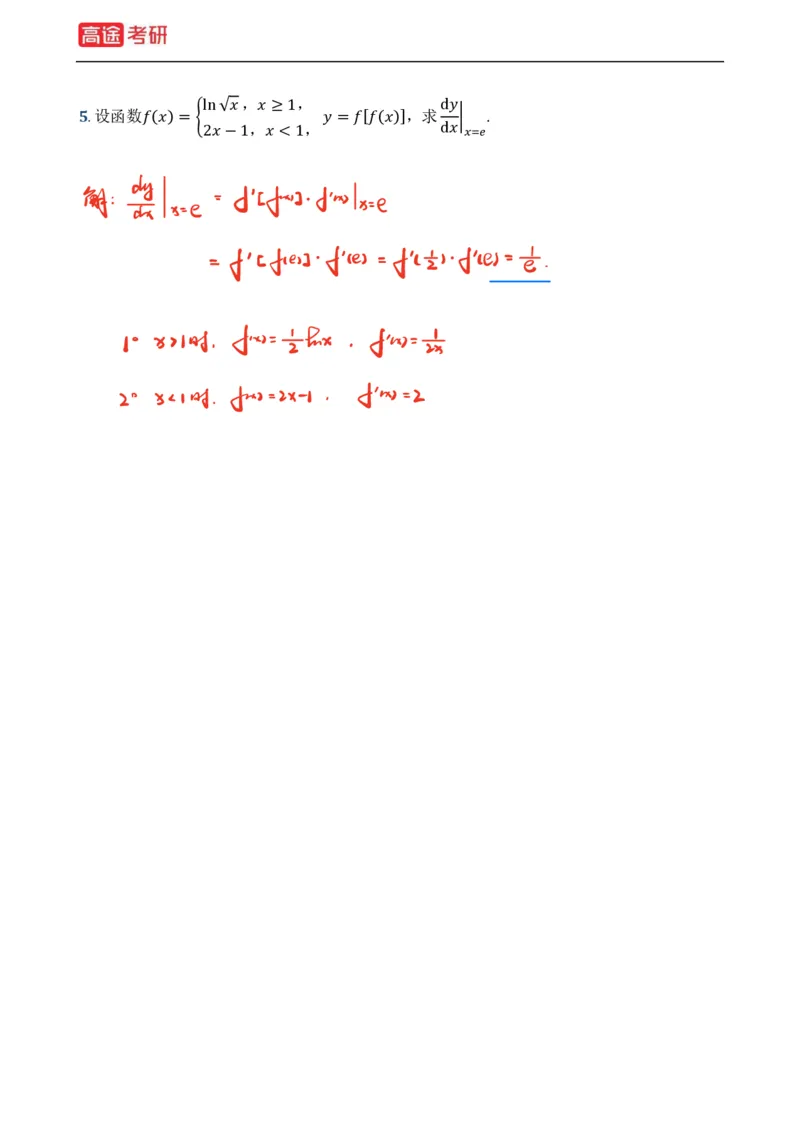 高途考研
5. 设函数f(x) = {ln √x, x ≥ 1, 2x − 1, x < 1, y = f[f(x)], 求 dy/dx|x=e.
解: dy/dx|x=e = f'[f(x)]·f'(x)|x=e
= f'[f(e)]·f'(e) = f'(1/2)·f'(e) = 1/e.
1° x>1时. f(x)=1/2 lnx. f'(x)=1/2x
2° x<1时. f(x)=2x-1. f'(x)=2